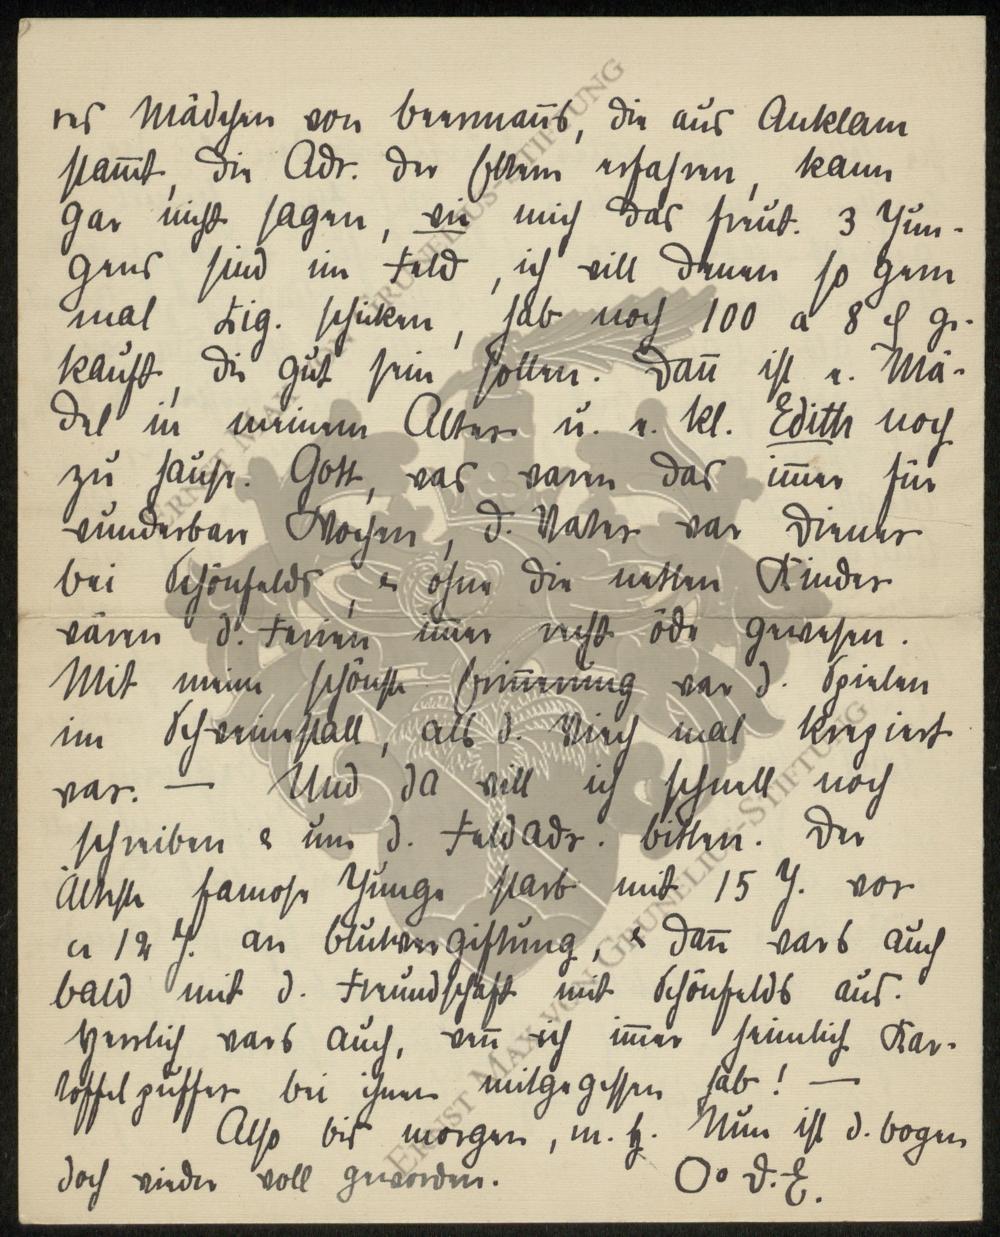 res Mädchen von Beermanns, die aus Anklam
stam̄t, die Adr. der Eltern erfahren, kann
gar nicht sagen, wie mich das freut. 3 Jun-
gens sind im Feld, ich will denen so gern
mal Zig. schicken, hab noch 100 a 8 ₰ ge-
kauft, die gut sein sollen. Dan̄ ist e. Mä-
del in meinem Alter u. e. kl. Edith noch
zu Hause. Gott, was waren das im̄er für
wunderbare Wochen, d. Vater war Diener
bei Schönfelds, & ohne die netten Kinder
wären d. Ferien im̄er recht öde gewesen.
Mit meine schönste Erin̄erung war d. Spielen
im Schweinestall, als d. Viech mal krepiert
war. — Und da will ich schnell noch
schreiben & um d. Feldadr. bitten. Der
Älteste famose Junge starb mit 15 J. vor
ca 12 J. an Blutvergiftung, & dan̄ wars auch
bald mit d. Freundschaft mit Schönfelds aus.
Herrlich wars auch, wen̄ ich im̄er heimlich Kar-
toffelpuffer bei ihnen mitgegessen hab! —
Also bis morgen, m. H. Nun ist d. Bogen
doch wieder voll geworden. Oo D. E.
ERNST MAX VON GRUNELIUS-STIFTUNG
ERNST MAX VON GRUNELIUS-STIFTUNG